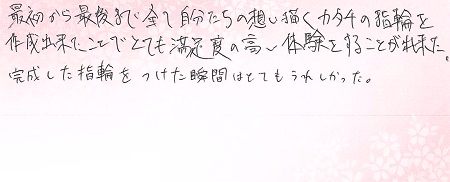 最初から最後まで全て自分たちの想い描くカタチの指輪を
作成出来たことでとても満足度の高い体験をすることが出来た。
完成した指輪をつけた瞬間はとてもうれしかった。